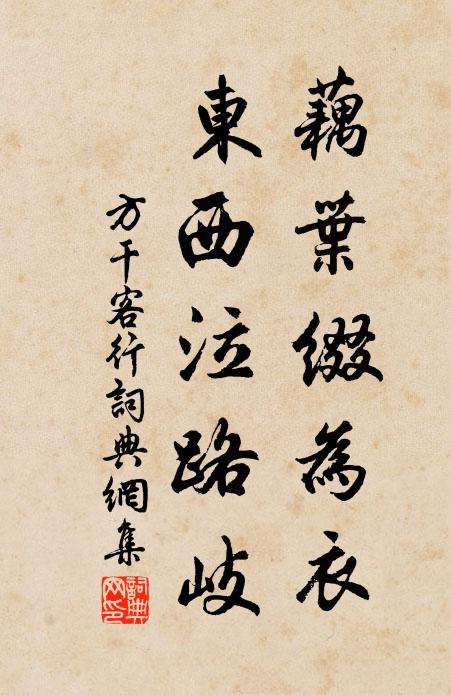 藕葉綴為衣
東西泣路歧
方干客行詞典網集
詞典
網印